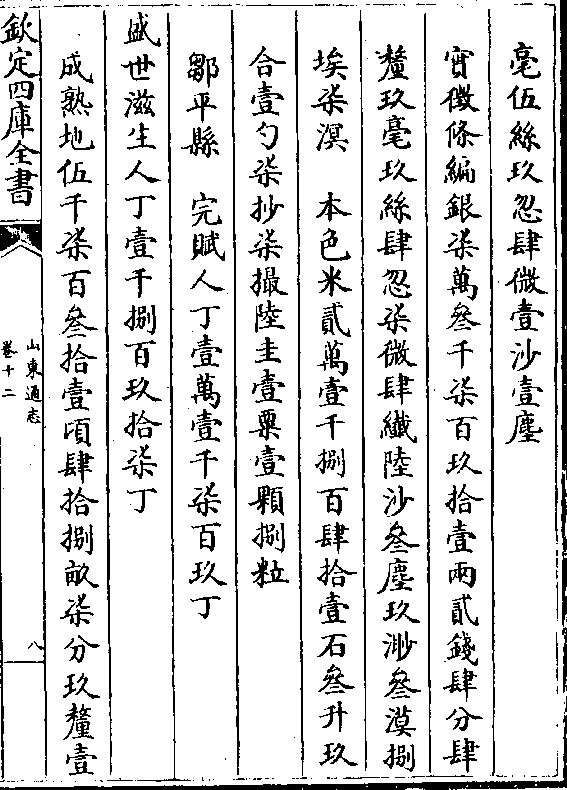 毫伍絲玖忽肆微壹沙壹塵
實徵條編銀柒萬叁千柒百玖拾壹兩貳錢肆分肆
釐玖毫玖絲肆忽柒微肆纖陸沙叁塵玖渺叁漠捌
埃柒溟　本色米貳萬壹千捌百肆拾壹石叁升玖
合壹勺柒抄柒撮陸圭壹粟壹顆捌粒
鄒平縣　完賦人丁壹萬壹千柒百玖丁
盛世滋生人丁壹千捌百玖拾柒丁
成熟地伍千柒百叁拾壹頃肆拾捌畝柒分玖釐壹
欽定四庫全書
山東通志
卷十二
八